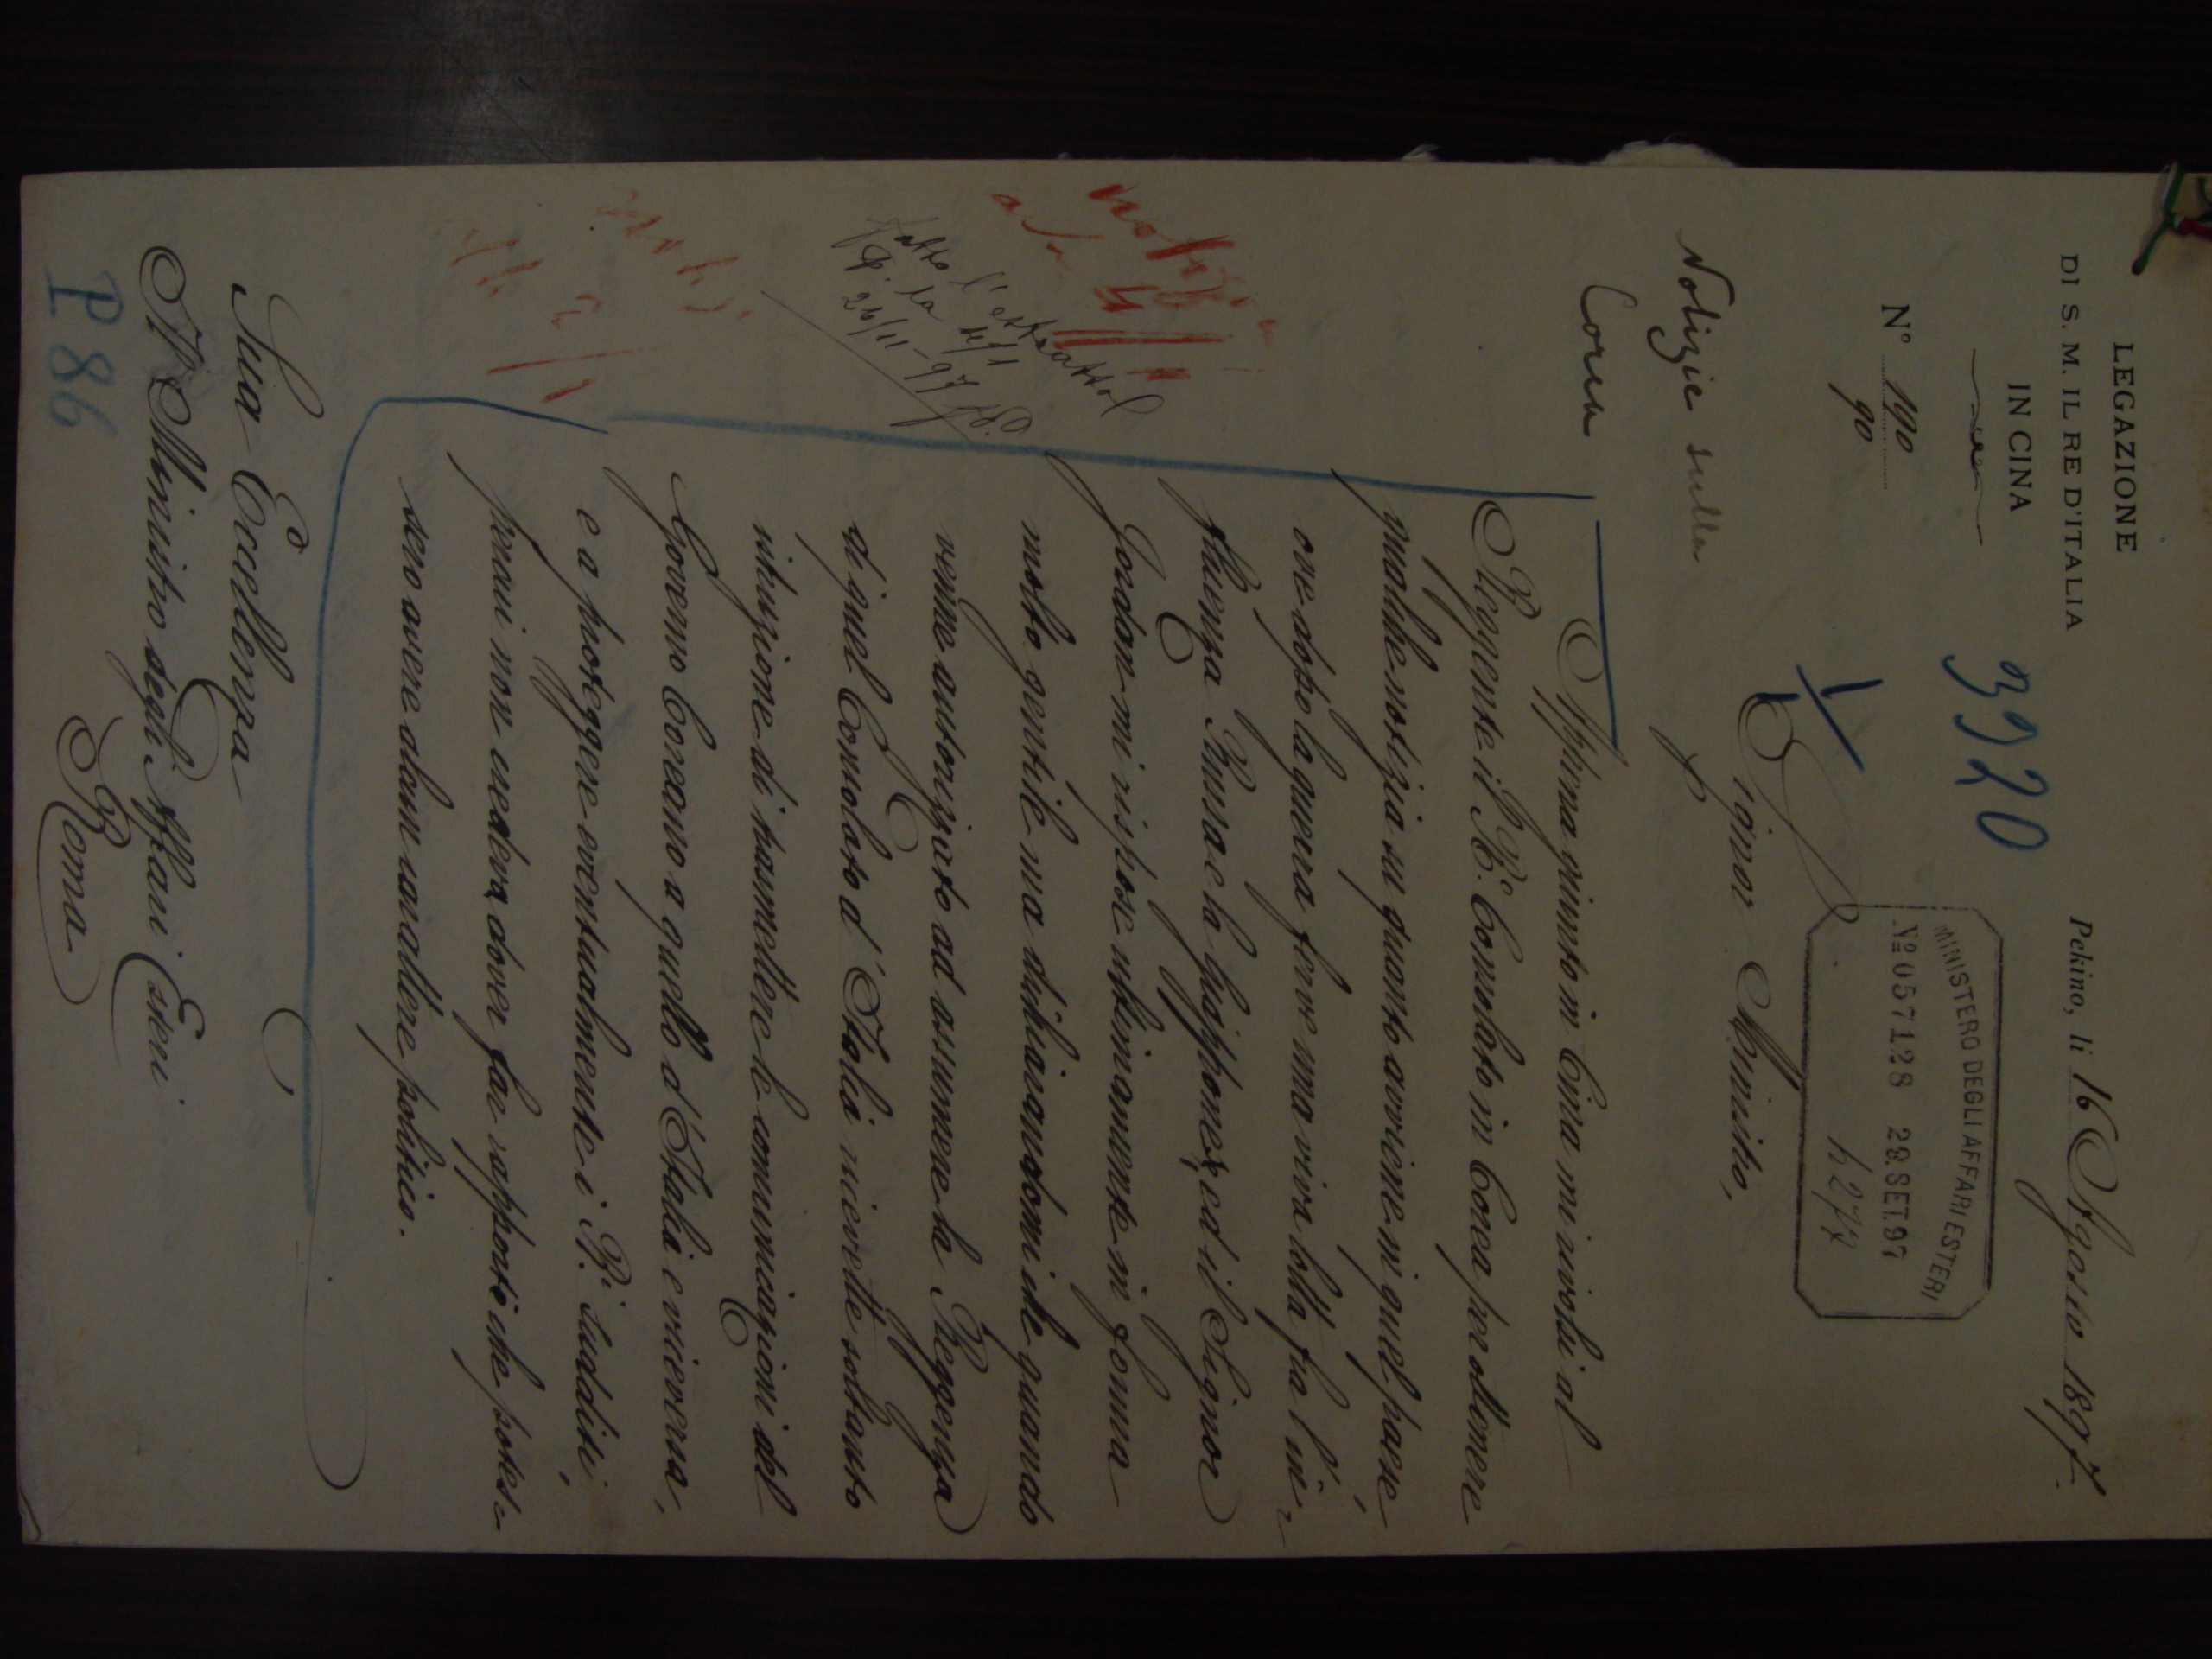 LEGAZIONE
DI S. M. IL RE D'ITALIA
IN CINA
Nº 190
90
3920
Pekino, li 16 Agosto 1897.
MINISTERO DEGLI AFFARI ESTERI
Nº 057128 29. SET. 97
Notizie sulla
Corea
Signor Ministro,
Appena giunto in Cina mi rivolsi al
Reggente il Rº Consolato in Corea per ottenere
qualche notizia su quanto avviene in quel paese
ove dopo la guerra ferve una viva lotta fra l'in-
fluenza Russa e la Giapponese, ed il Signor
Jordan mi rispose ultimamente in forma
molto gentile ma dichiarandomi che quando
venne autorizzato ad assumere la Reggenza
di quel Consolato d'Italia ricevette soltanto
istruzione di trasmettere le comunicazioni del
Governo Coreano a quello d'Italia e viceversa,
e a proteggere eventualmente i Rⁱ sudditi,
perciò non credeva dover far rapporti che potes-
sero avere alcun carattere politico.
fatto l'estratto
p. la
26/11-97
Sua Eccellenza
Il Ministro degli Affari Esteri
Roma
P 86